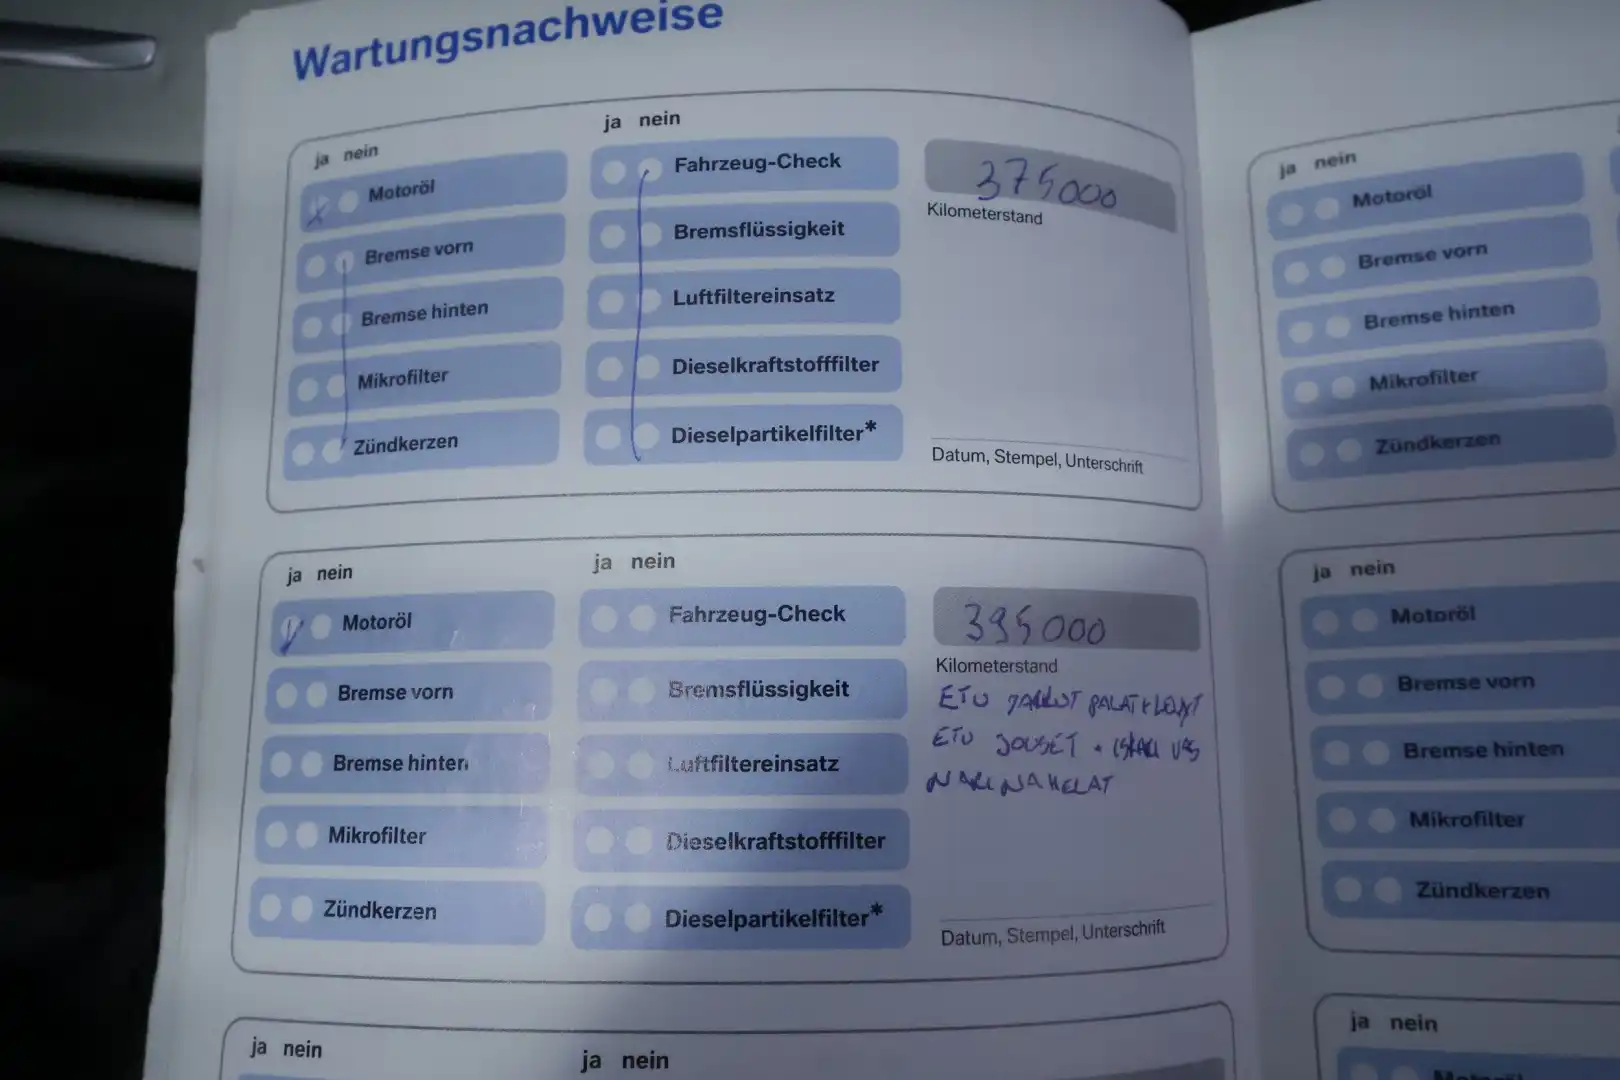 Wartungsnachweise
ja nein
Motoröl
Bremse vorn
Bremse hinten
Mikrofilter
Zündkerzen
ja nein
Fahrzeug-Check
Bremsflüssigkeit
Luftfiltereinsatz
Dieselkraftstofffilter
Dieselpartikelfilter*
375000
Kilometerstand
Datum, Stempel, Unterschrift
ja nein
Motoröl
Bremse vorn
Bremse hinten
Mikrofilter
Zündkerzen
ja nein
Fahrzeug-Check
Bremsflüssigkeit
Luftfiltereinsatz
Dieselkraftstofffilter
Dieselpartikelfilter*
395000
Kilometerstand
ETU JARRUT PALAT+LEVYT
ETU JOUSET + ISKARI
ja nein
ja nein
ja nein
Motoröl
Bremse vorn
Bremse hinten
Mikrofilter
Zündkerzen
ja nein
Motoröl
Bremse vorn
Bremse hinten
Mikrofilter
Zündkerzen
ja nein
Motoröl
Datum, Stempel, Unterschrift